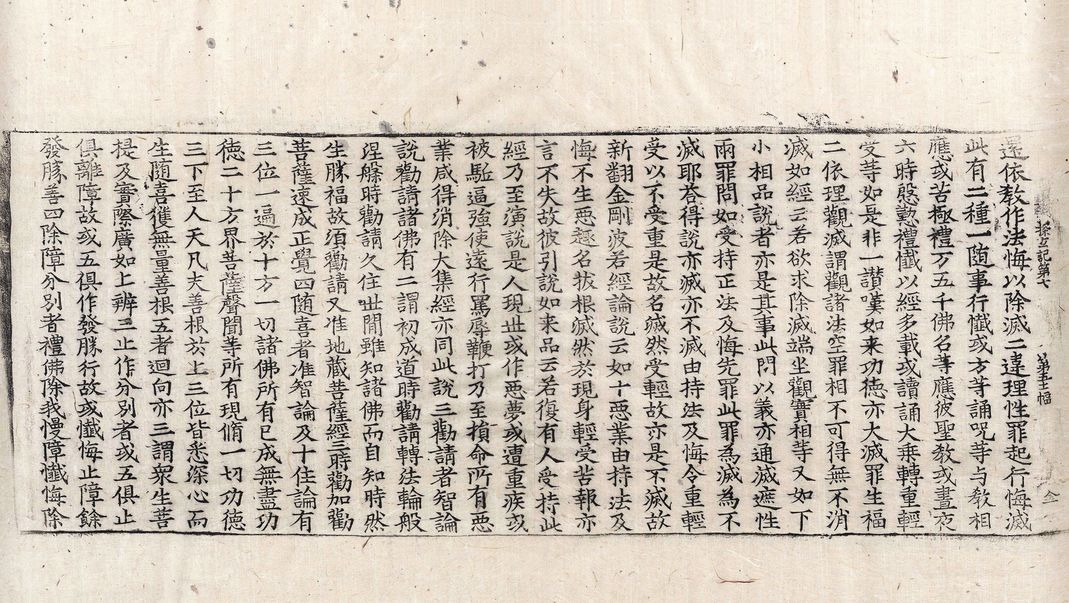 還依教作法悔以除滅二違理性罪起行悔滅
探玄記第七　第十二幅
此有二種一隨事行懺或方等誦呪等与教相
應或苦極禮万五千佛名等應彼聖教或晝夜
六時慇懃禮懺以經多載或讀誦大乘轉重輕
受等如是非一讚嘆如來功德亦大滅罪生福
二依理觀滅謂觀諸法空罪相不可得無不消
滅如經云若欲求除滅端坐觀實相等又如下
小相品說者亦是其事此門以義亦通滅遮性
兩罪問如受持正法及悔先罪此罪為滅為不
滅耶荅得說亦滅亦不滅由持法及悔令重輕
受以不受重是故名滅然受輕故亦是不滅故
新翻金剛波若經論說云如十惡業由持法及
悔不生惡趣名拔根滅然於現身輕受苦報亦
言不失故彼引說如来品云若復有人受持此
經乃至演說是人現世或作惡夢或遭重疾或
被駈逼強使遠行罵辱鞭打乃至損命所有惡
業咸得消除大集經亦同此說三勸請者智論
說勸請諸佛有二謂初成道時勸請轉法輪般
涅槃時勸請久住世間雖知諸佛而自知時然
生勝福故須勸請又准地藏菩薩經三時勸加勸
菩薩速成正覺四随喜者准智論及十住論有
三位一遍於十方一切諸佛所有已成無盡功
德二十方界菩薩聲聞等所有現脩一切功德
三下至人天凡夫善根於上三位皆悉深心而
生随喜獲無量善根五者迴向亦三謂衆生菩
提及實際廣如上辨三止作分別者或五俱止
俱離障故或五俱作發勝行故或懺悔止障餘
發勝善四除障分別者禮佛除我慢障懺悔除